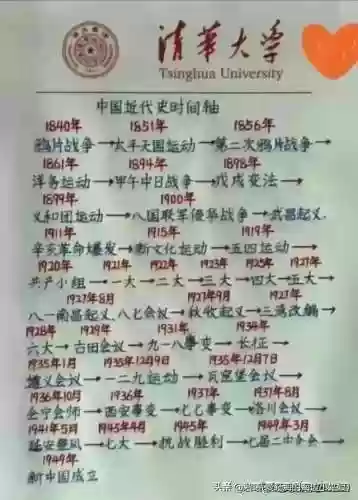 清华大学
Tsinghua University
中国近代史时间轴
1840年 1851年 1856年
鸦片战争→太平天国运动→第二次鸦片战争→
1861年 1894年 1898年
洋务运动→甲午中日战争→戊戌变法→
1899年 1900年
义和团运动→八国联军侵华战争→武昌起义.
1911年 1915年 1919年
辛亥革命爆发→新文化运动→五四运动→
1920年 1921年 1922年 1923年 1925年 1927年
共产小组→一大→二大→三大→四大→五大→
1927年8月 1927年9月 1927年
八一南昌起义.八七会议→秋收起义→三湾改编→
1928年 1929年 1931年 1934年
六大→古田会议→九一八事变→长征→
1935年1月 1935年12月9日 1935年12月7日
遵义会议→一二九运动→瓦窑堡会议→
1936年10月 1936年 1937年 1937年8月
会宁会师→西安事变→七七事变→洛川会议→
1941年5月 1945年4月 1945年 1949年3月
延安整风→七大→抗战胜利→七届二中全会→
1949年
新中国成立